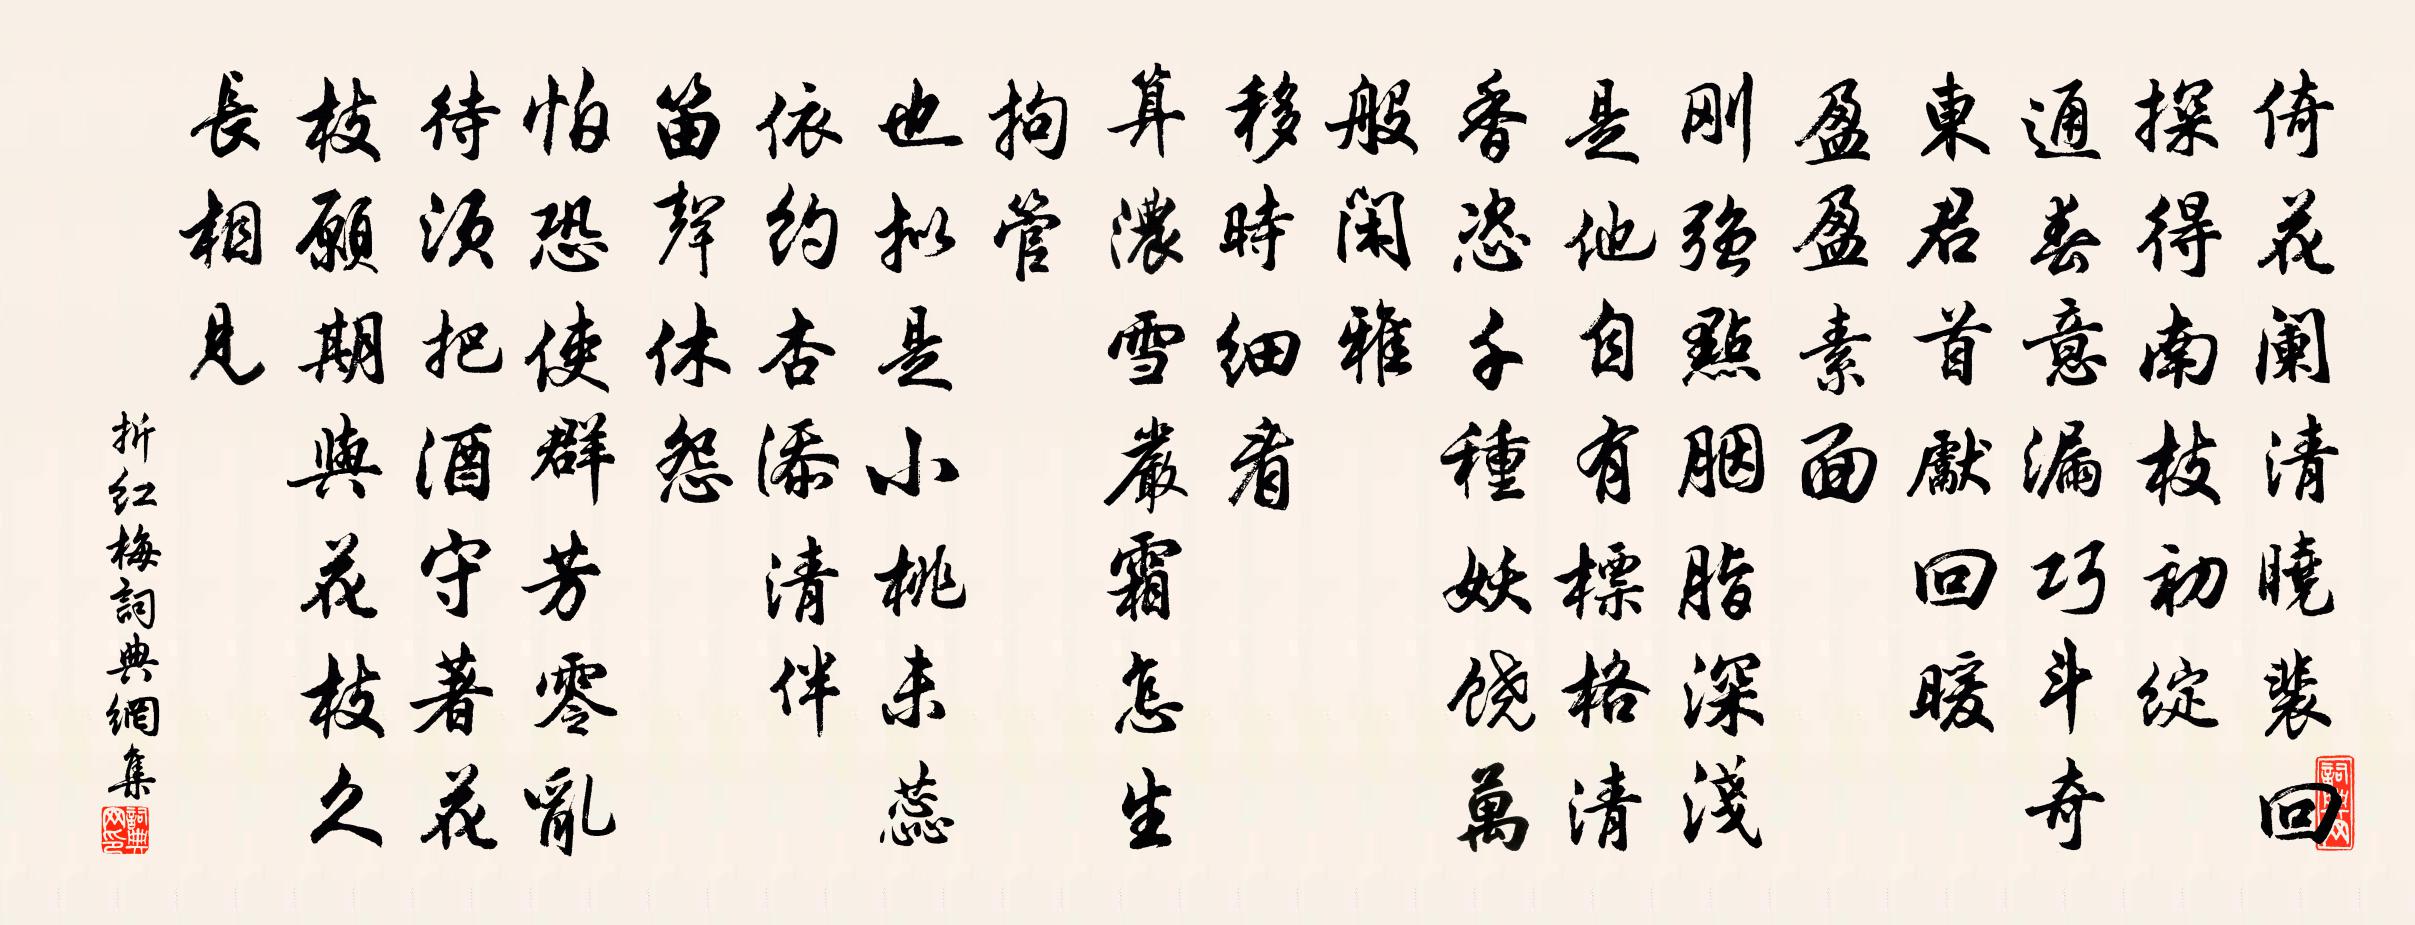 倚花阑清曉裴回
探得南枝初綻
通春意漏巧斗奇
東君首獻回暖
盈盈素面
剛強點胭脂深淺
是他自有標格清
香恣千種妖饶萬
般閑雅
移時细看
算濃雪嚴霜怎生
拘管
也拟是小桃未蕊
依约杏添清伴
笛聲休怨
怕恐使群芳零亂
待须把酒守著花
枝願期與花枝久
長相見
折红梅詞典網集
詞典